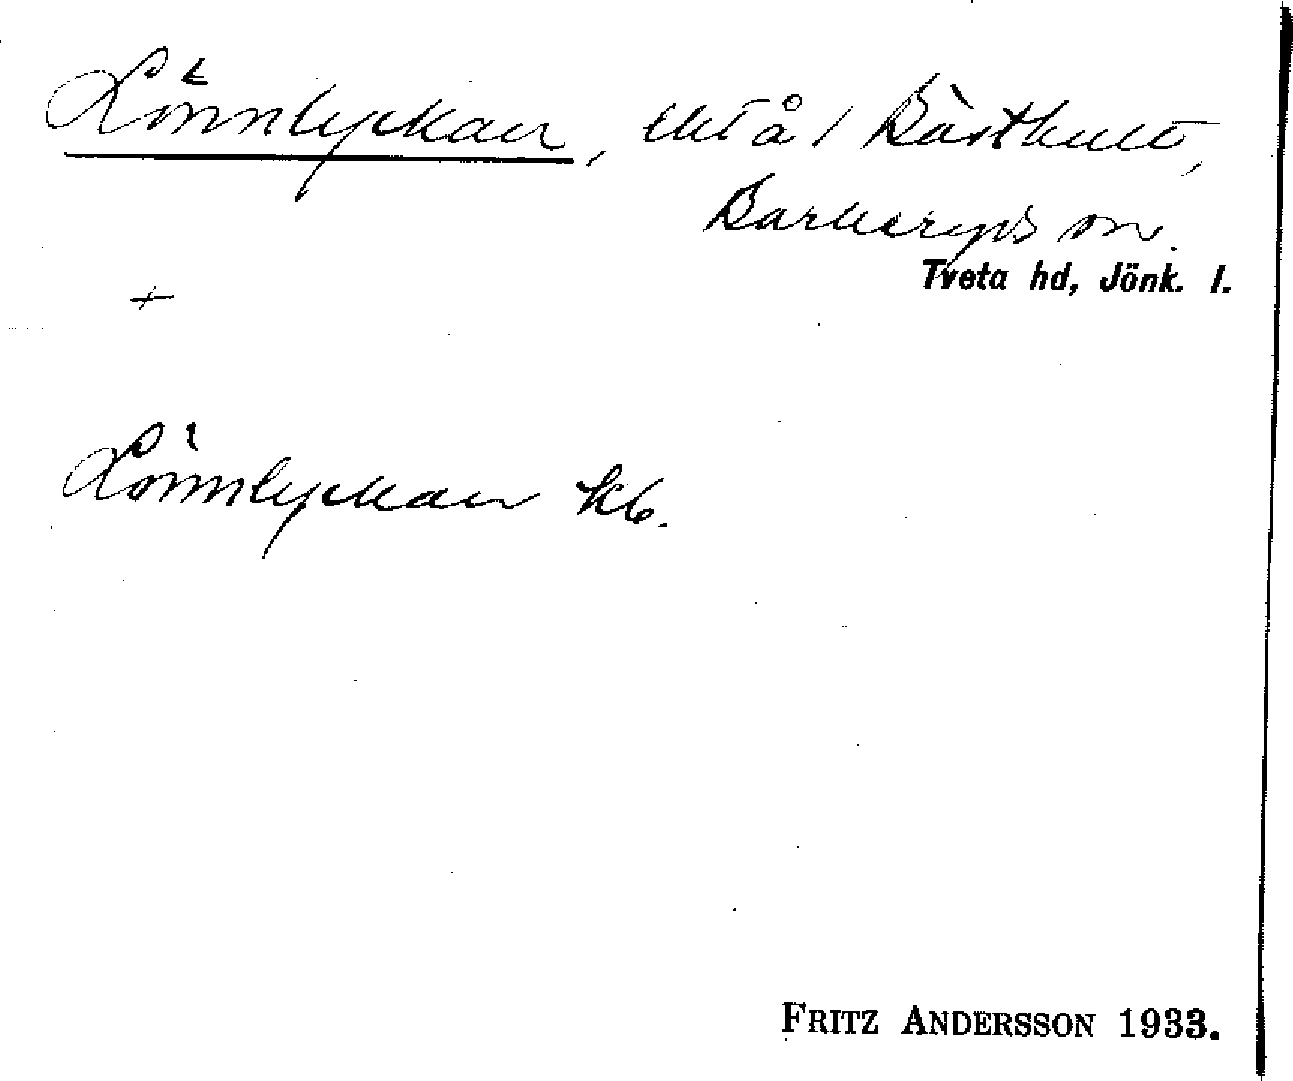 Lönnlyckan, tkt å 1 Bästhult,
Barkeryds sn.
Tveta hd, Jönk. l.
+
Lönnlyckan kb.
FRITZ ANDERSSON 1933.